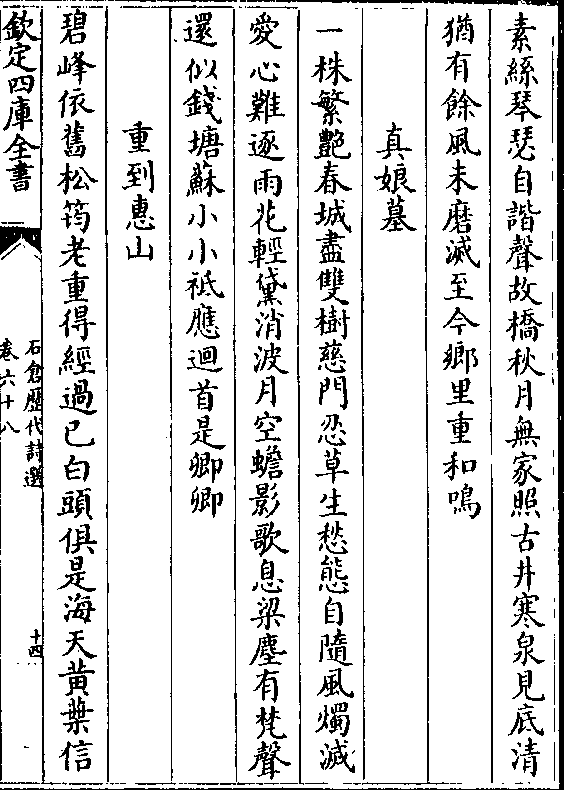 素絲琴瑟自諧聲故橋秋月無家照古井寒泉見底清
猶有餘風未磨滅至今鄉里重和鳴
真娘墓
一株繁艷春城盡雙樹慈門忍草生愁態自隨風燭滅
愛心難逐雨花輕黛消波月空蟾影歌息梁塵有梵聲
還似錢塘蘇小小祗應迴首是卿卿
重到惠山
碧峰依舊松筠老重得經過已白頭俱是海天黃葉信
欽定四庫全書
石倉歷代詩選
卷六十八
十四